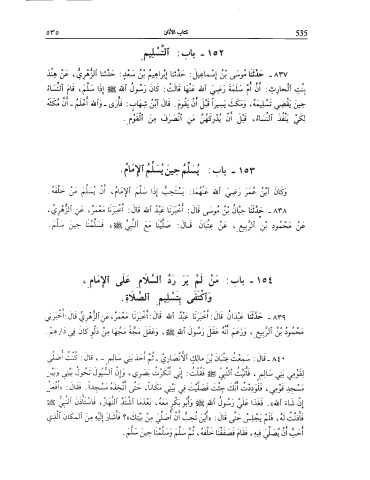 ٥٣٥ كتاب الأذان 535
١٥٢ - باب: التَّسْلِيمِ
٨٣٧ - حَدَّثَنَا مُوسَى بْنُ إِسْمَاعِيلَ: حَدَّثَنَا إِبْرَاهِيمُ بْنُ سَعْدٍ: حَدَّثَنَا الزُّهْرِيُّ، عَنْ هِنْدَ
بِنْتِ الْحَارِثِ: أَنَّ أُمَّ سَلَمَةَ رَضِيَ اللهُ عَنْهَا قَالَتْ: كَانَ رَسُولُ اللهِ ﷺ إِذَا سَلَّمَ، قَامَ النِّسَاءُ
حِينَ يَقْضِي تَسْلِيمَهُ، وَمَكَثَ يَسِيرًا قَبْلَ أَنْ يَقُومَ. قَالَ ابْنُ شِهَابٍ: فَأُرَى - وَاللهُ أَعْلَمُ - أَنَّ مُكْثَهُ
لِكَيْ يَنْفُذَ النِّسَاءُ، قَبْلَ أَنْ يُدْرِكَهُنَّ مَنِ انْصَرَفَ مِنَ الْقَوْمِ.
١٥٣ - باب: يُسَلِّمُ حِينَ يُسَلِّمُ الْإِمَامُ.
وَكَانَ ابْنُ عُمَرَ رَضِيَ اللهُ عَنْهُمَا: يَسْتَحِبُّ إِذَا سَلَّمَ الْإِمَامُ، أَنْ يُسَلِّمَ مَنْ خَلْفَهُ.
٨٣٨ - حَدَّثَنَا حِبَّانُ بْنُ مُوسَى قَالَ: أَخْبَرَنَا عَبْدُ اللهِ قَالَ: أَخْبَرَنَا مَعْمَرٌ، عَنِ الزُّهْرِيِّ،
عَنْ مَحْمُودِ بْنِ الرَّبِيعِ، عَنْ عِتْبَانَ قَالَ: صَلَّيْنَا مَعَ النَّبِيِّ ﷺ، فَسَلَّمْنَا حِينَ سَلَّمَ.
١٥٤ - باب: مَنْ لَمْ يَرَ رَدَّ السَّلَامِ عَلَى الْإِمَامِ،
وَاكْتَفَى بِتَسْلِيمِ الصَّلَاةِ.
٨٣٩ - حَدَّثَنَا عَبْدَانُ قَالَ: أَخْبَرَنَا عَبْدُ اللهِ قَالَ: أَخْبَرَنَا مَعْمَرٌ، عَنِ الزُّهْرِيِّ قَالَ: أَخْبَرَنِي
مَحْمُودُ بْنُ الرَّبِيعِ، وَزَعَمَ أَنَّهُ عَقَلَ رَسُولَ اللهِ ﷺ، وَعَقَلَ مَجَّةً مَجَّهَا مِنْ دَلْوٍ كَانَ فِي دَارِهِمْ.
٨٤٠ - قَالَ: سَمِعْتُ عِتْبَانَ بْنَ مَالِكٍ الْأَنْصَارِيَّ - ثُمَّ أَحَدَ بَنِي سَالِمٍ - قَالَ: كُنْتُ أُصَلِّي
لِقَوْمِي بَنِي سَالِمٍ، فَأَتَيْتُ النَّبِيَّ ﷺ فَقُلْتُ: إِنِّي أَنْكَرْتُ بَصَرِي، وَإِنَّ السُّيُولَ تَحُولُ بَيْنِي وَبَيْنَ
مَسْجِدِ قَوْمِي، فَلَوَدِدْتُ أَنَّكَ جِئْتَ فَصَلَّيْتَ فِي بَيْتِي مَكَانًا، حَتَّى أَتَّخِذَهُ مَسْجِدًا. فَقَالَ: «أَفْعَلُ
إِنْ شَاءَ اللهُ». فَغَدَا عَلَيَّ رَسُولُ اللهِ ﷺ وَأَبُو بَكْرٍ مَعَهُ، بَعْدَمَا اشْتَدَّ النَّهَارُ، فَاسْتَأْذَنَ النَّبِيُّ ﷺ
فَأَذِنْتُ لَهُ، فَلَمْ يَجْلِسْ حَتَّى قَالَ: «أَيْنَ تُحِبُّ أَنْ أُصَلِّيَ مِنْ بَيْتِكَ؟» فَأَشَارَ إِلَيْهِ مِنَ الْمَكَانِ الَّذِي
أَحَبَّ أَنْ يُصَلِّيَ فِيهِ، فَقَامَ فَصَفَفْنَا خَلْفَهُ، ثُمَّ سَلَّمَ وَسَلَّمْنَا حِينَ سَلَّمَ.